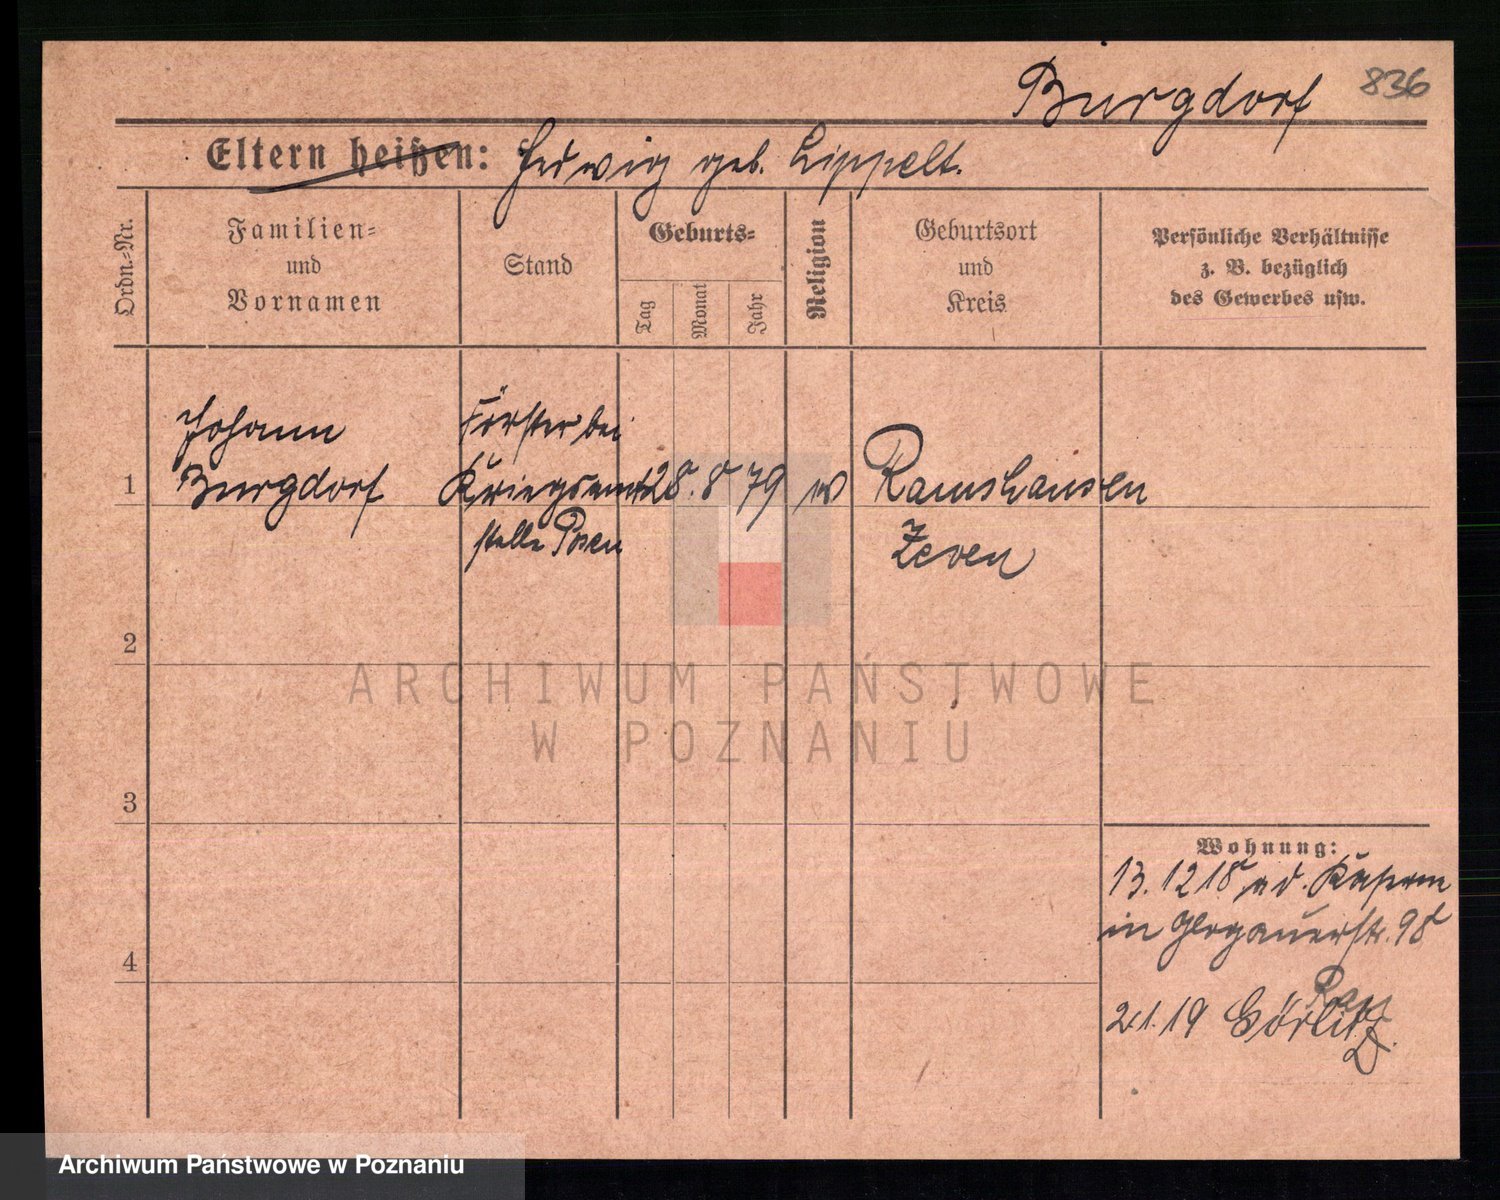 Burgdorf 836
Eltern heißen: Hedwig geb. Lippelt.
Ordn.=Nr.
Familien=
und
Vornamen
Stand
Geburts=
Tag
Monat
Jahr
Religion
Geburtsort
und
Kreis
Persönliche Verhältnisse
z. B. bezüglich
des Gewerbes usw.
1
Johann
Burgdorf
Förster bei
Kriegsamt
stelle Posen
28. 8 79
Ramshausen
Zeven
2
3
4
Wohnung:
13. 12 18 a d. Kasern
in Glogauerstr. 98
2 1. 19 Görlitz
ARCHIWUM PAŃSTWOWE
W POZNANIU
Archiwum Państwowe w Poznaniu